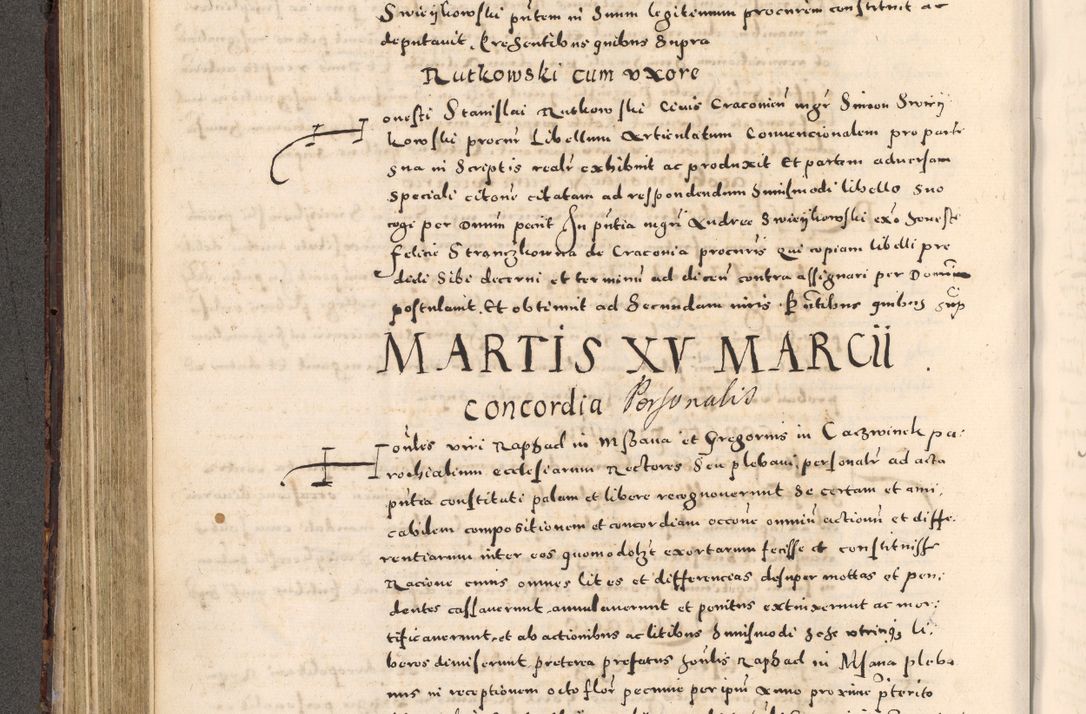 Swieÿkowski pñtem in Suum legitimum procurem constituit ac
deputavit, Presentibus quibus Supra
Rutkowski cum vxore
Honesti Stanislai Rutkowski Civis Craconien mgr Simon Swieÿ
kowski procur Libellum Articulatum Convencionalem pro parte
sua in Scriptis realr exhibuit ac produxit Et partem adversam
speciali citone citatam ad respondendum huiusmodi libello suo
cogi per Dnum petiit In pñtia mgri Andree Swieÿkowski exo honeste
felicie Stranczkowna de Craconia procuris qui copiam libelli pre
dicti Sibi decerni et terminu ad dicen contra assignari per Domum
postulavit. Et obtinuit ad Secundam iuris. Pñtibus quibus sup
MARTIS XV MARCII.
concordia Personalis
Honbles viri Raphael in Mszana et Gregorius in Caczwinek pa-
rochialium ecclesiarum Rectores Seu plebani, personalr ad acta
pñtia constituti palam et libere recognoverunt se certam et ami-
cabilem compositionem et concordiam occone omniu actionu et diffe-
rentiarum inter eos quomodolzt exortarum fecisse et constituisse
Racione cuius omnes lites et differencias desuper mottas et pen-
dentes cassaverunt, annulaverunt et penitus extinxerunt ac mor-
tificaverunt, et ab actionibus ac litibus huiusmodi sese utrinqz li-
beros dimiserunt, preterea prefatus honbls Raphael in Msana pleba
nus in receptionem octo flor pecunie per ipm Anno proxime pterito